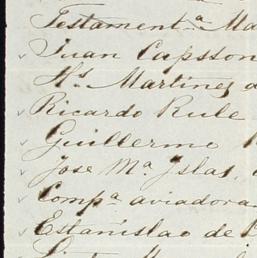 Testament.ª Ma
Juan Capsson
H.s Martinez a
Ricardo Rule
Guillermo
José Mª Yslas,
Compª aviadora
Estanislao de